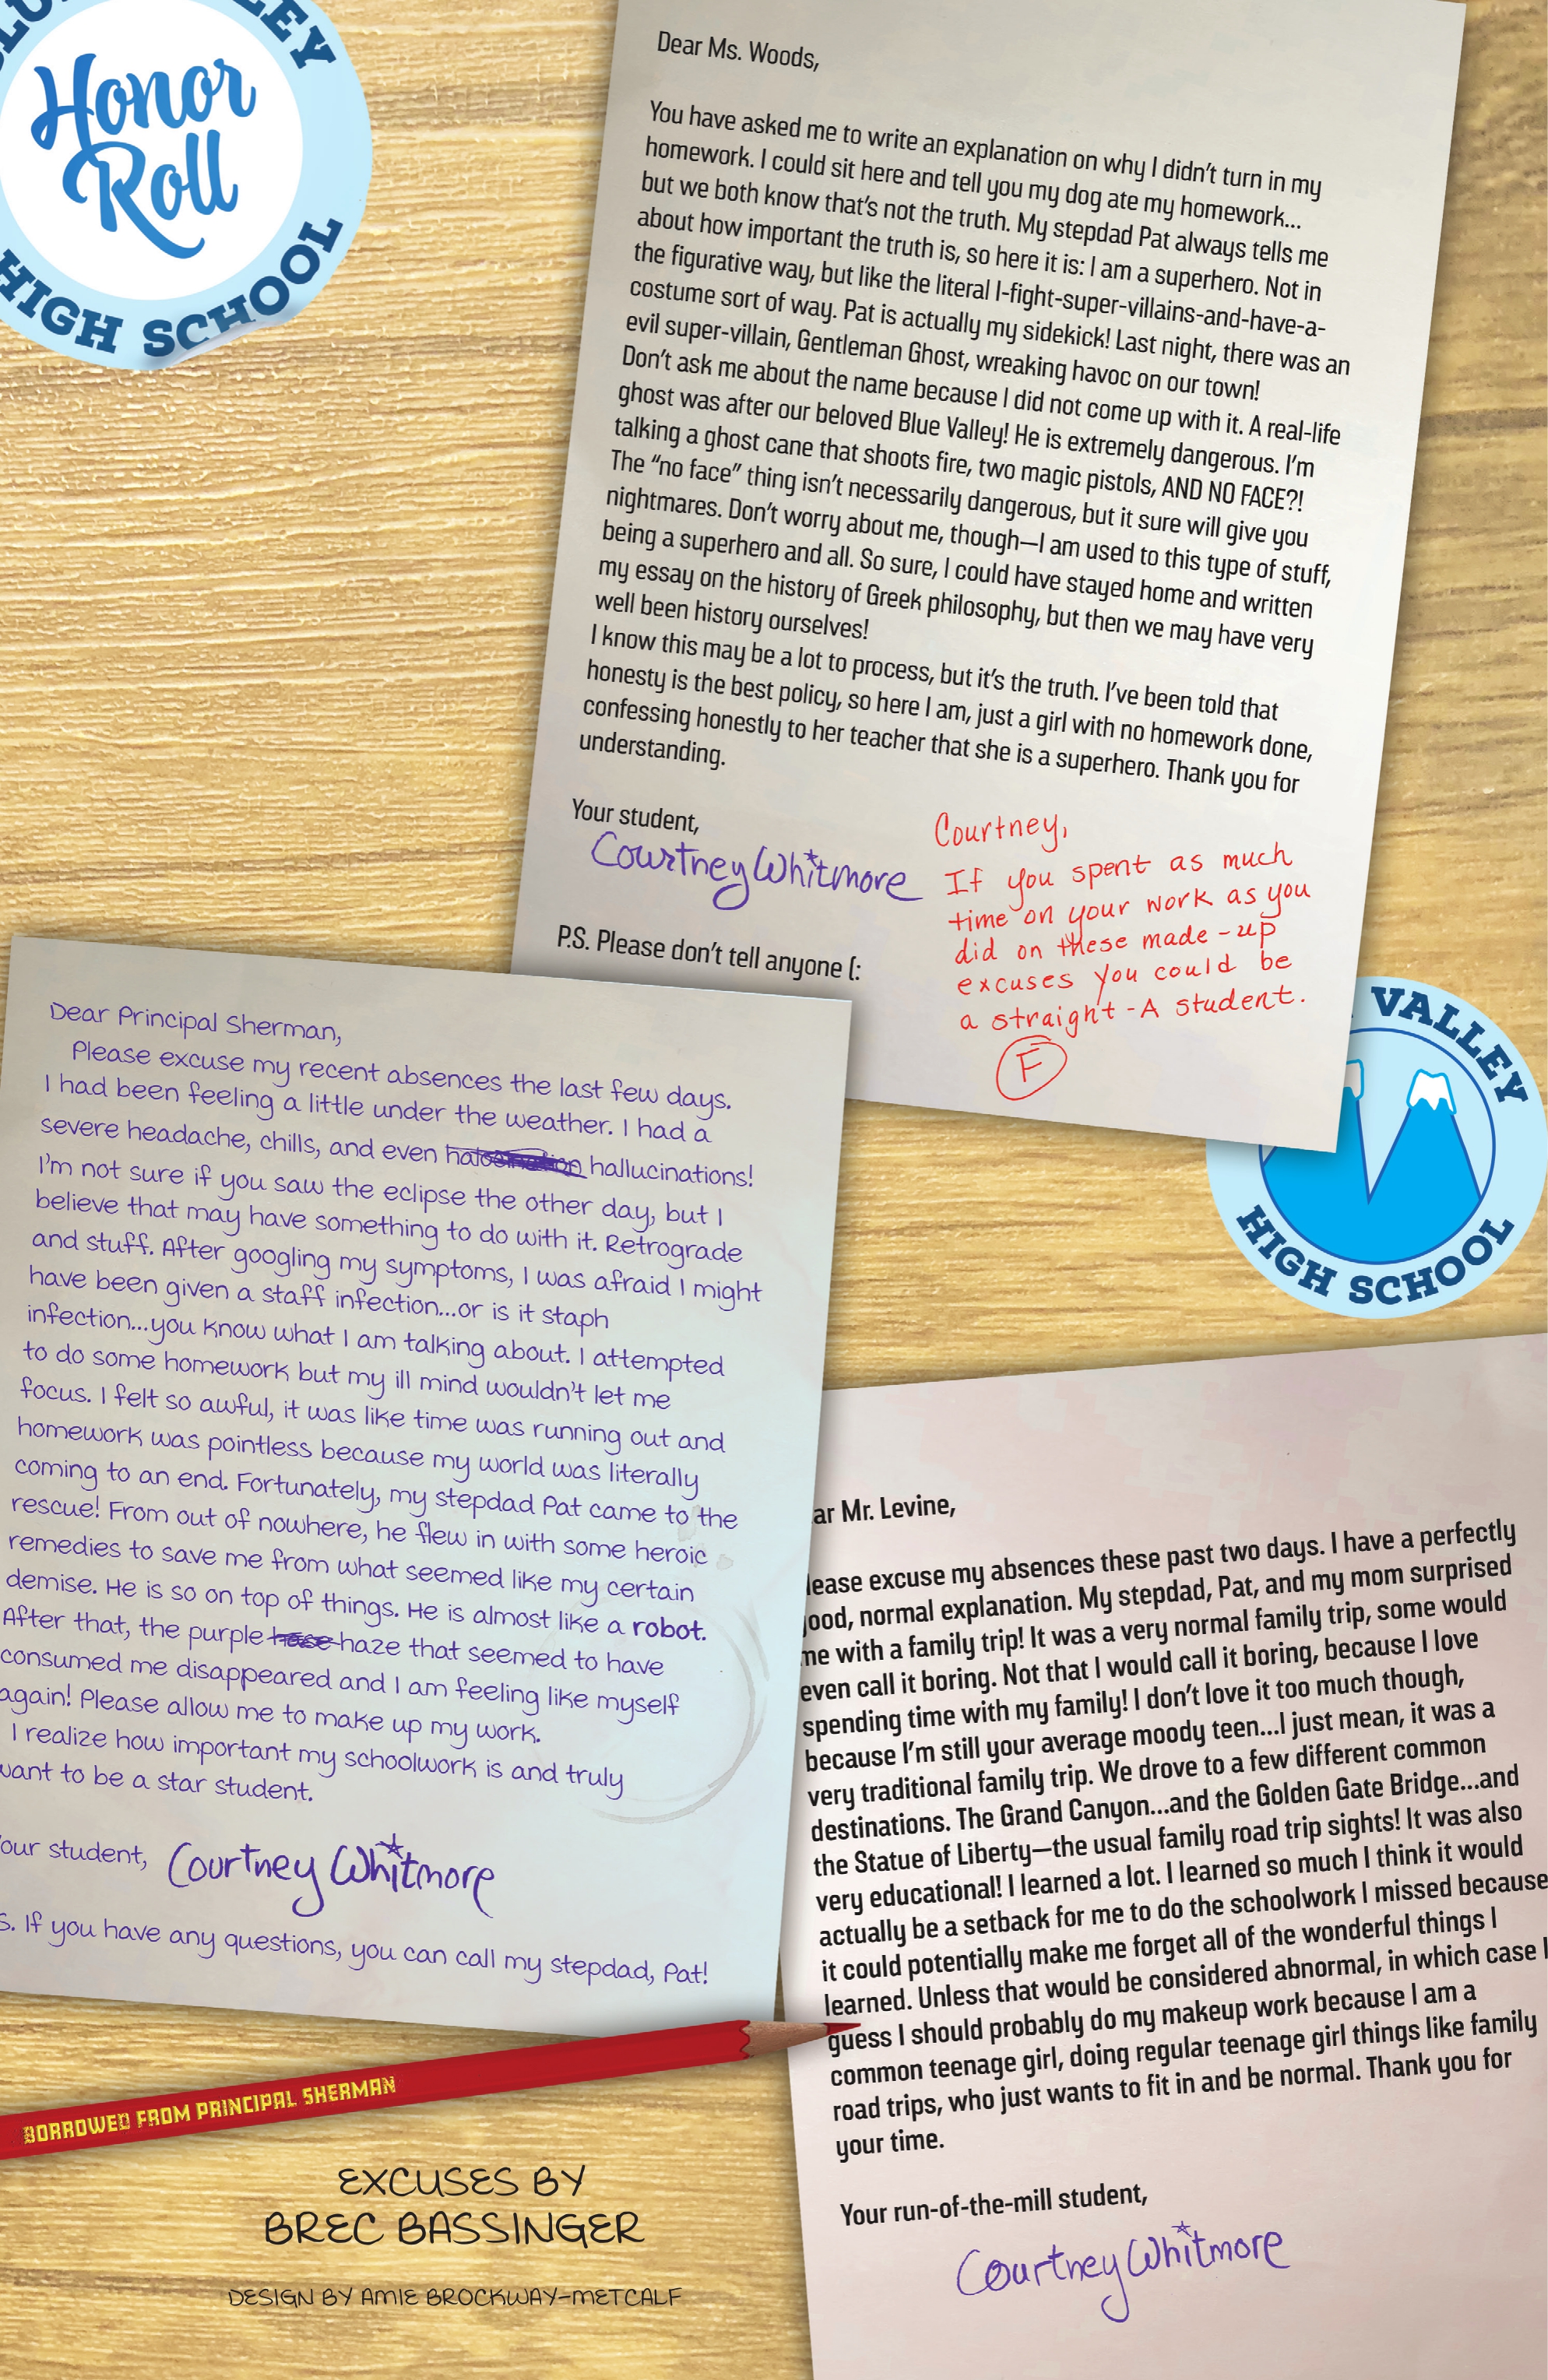 VALLEY
Honor
Roll
HIGH SCHOOL
Dear Ms. Woods,
You have asked me to write an explanation on why I didn't turn in my
homework. I could sit here and tell you my dog ate my homework...
but we both know that's not the truth. My stepdad Pat always tells me
about how important the truth is, so here it is: I am a superhero. Not in
the figurative way, but like the literal I-fight-super-villains-and-have-a-
costume sort of way. Pat is actually my sidekick! Last night, there was an
evil super-villain, Gentleman Ghost, wreaking havoc on our town!
Don't ask me about the name because I did not come up with it. A real-life
ghost was after our beloved Blue Valley! He is extremely dangerous. I'm
talking a ghost cane that shoots fire, two magic pistols, AND NO FACE?!
The "no face" thing isn't necessarily dangerous, but it sure will give you
nightmares. Don't worry about me, though—I am used to this type of stuff,
being a superhero and all. So sure, I could have stayed home and written
my essay on the history of Greek philosophy, but then we may have very
well been history ourselves!
I know this may be a lot to process, but it's the truth. I've been told that
honesty is the best policy, so here I am, just a girl with no homework done,
confessing honestly to her teacher that she is a superhero. Thank you for
understanding.
Your student,
Courtney Whitmore
P.S. Please don't tell anyone (:
Courtney,
If you spent as much
time on your work as you
did on these made-up
excuses you could be
a straight-A student.
F
Dear Principal Sherman,
Please excuse my recent absences the last few days.
I had been feeling a little under the weather. I had a
severe headache, chills, and even hallucinations!
I'm not sure if you saw the eclipse the other day, but I
believe that may have something to do with it. Retrograde
and stuff. After googling my symptoms, I was afraid I might
have been given a staff infection...or is it staph
infection...you know what I am talking about. I attempted
to do some homework but my ill mind wouldn't let me
focus. I felt so awful, it was like time was running out and
homework was pointless because my world was literally
coming to an end. Fortunately, my stepdad Pat came to the
rescue! From out of nowhere, he flew in with some heroic
remedies to save me from what seemed like my certain
demise. He is so on top of things. He is almost like a robot.
After that, the purple hase haze that seemed to have
consumed me disappeared and I am feeling like myself
again! Please allow me to make up my work.
I realize how important my schoolwork is and truly
want to be a star student.
our student, Courtney Whitmore
S. If you have any questions, you can call my stepdad, Pat!
VALLEY
HIGH SCHOOL
ar Mr. Levine,
lease excuse my absences these past two days. I have a perfectly
ood, normal explanation. My stepdad, Pat, and my mom surprised
me with a family trip! It was a very normal family trip, some would
even call it boring. Not that I would call it boring, because I love
spending time with my family! I don't love it too much though,
because I'm still your average moody teen...I just mean, it was a
very traditional family trip. We drove to a few different common
destinations. The Grand Canyon...and the Golden Gate Bridge...and
the Statue of Liberty—the usual family road trip sights! It was also
very educational! I learned a lot. I learned so much I think it would
actually be a setback for me to do the schoolwork I missed because
it could potentially make me forget all of the wonderful things I
learned. Unless that would be considered abnormal, in which case I
guess I should probably do my makeup work because I am a
common teenage girl, doing regular teenage girl things like family
road trips, who just wants to fit in and be normal. Thank you for
your time.
Your run-of-the-mill student,
Courtney Whitmore
BORROWED FROM PRINCIPAL SHERMAN
EXCUSES BY
BREC BASSINGER
DESIGN BY AMIE BROCKWAY-METCALF